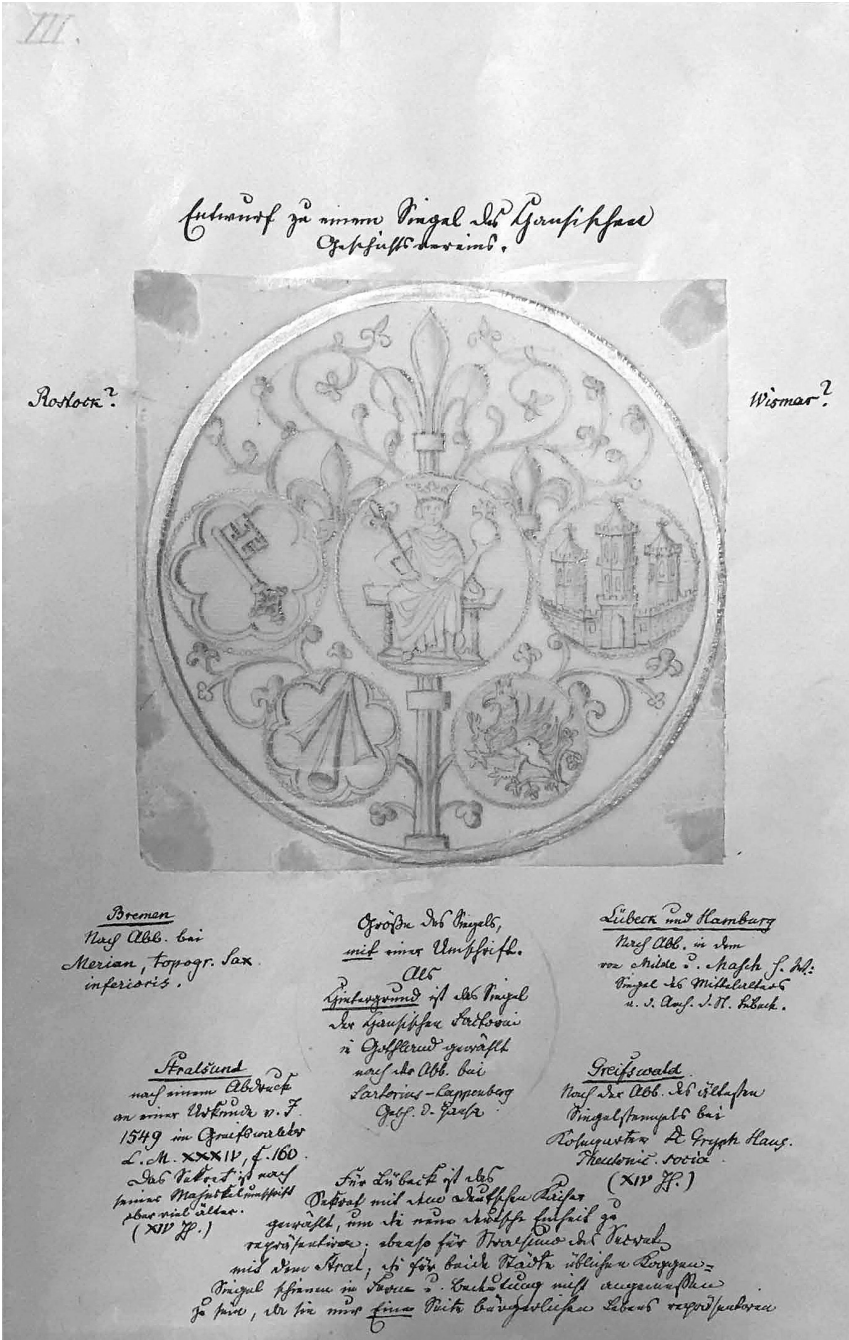 III.
Entwurf zu einem Siegel des Hansischen
Geschichtsvereins.
Rostock?
Wismar?
Bremen
Nach Abb. bei
Merian, topogr. Sax.
inferioris.
Größe des Siegels,
mit einer Umschrift.
Als
Hintergrund ist das Siegel
der Hansischen Factorei
in Gothland gewählt
nach der Abb. bei
Sartorius-Lappenberg
Gesch. d. Hanse
Lübeck und Hamburg
Nach Abb. in dem
von Milde u. Masch h. W.:
Siegel des Mittelalters
a. d. Arch. d. St. Lübeck.
Stralsund
nach einem Abdruck
an einer Urkunde v. J.
1549 im Greifswalder
L. M. XXXIV, f. 160.
Das Sekret ist nach
seiner Majuskelumschrift
aber viel älter.
(XIV Jh.)
Greifswald
Nach der Abb. des ältesten
Siegelstempels bei
Kosegarten de Gryph Hans.
Theutonic. socia
(XIV Jh.)
Für Lübeck ist das
Sekret mit dem deutschen Kaiser
gewählt, um die neue deutsche Einheit zu
repräsentiren; ebenso für Stralsund das Secret
mit dem Stral; die für beide Städte üblichen Koggen-
Siegel schienen in Form u. Bedeutung nicht angemessen
zu sein, da sie nur Eine Seite bürgerlichen Lebens repräsentiren